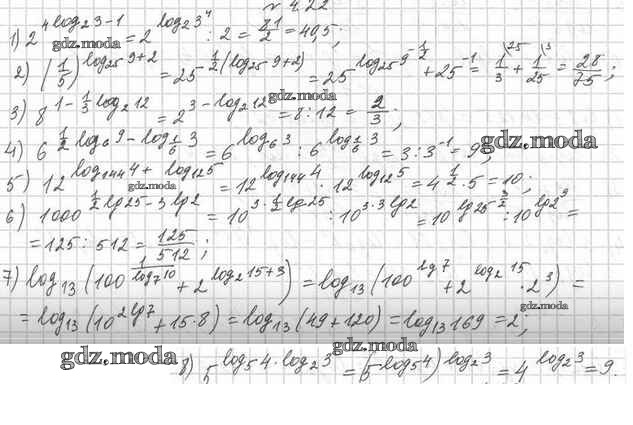 № 4.22
1) 2^(4log₂3-1) = 2^(log₂3⁴) : 2 = 81/2 = 40,5;
gdz.moda
2) (1/5)^(log₂₅9+2) = 25^(-1/2(log₂₅9+2)) = 25^(log₂₅9^(-1/2)) + 25^(-1) = 1/3 \25 + 1/25 \3 = 28/75;
3) 8^(1-1/3log₂12) = 2^(3-log₂12) = 8 : 12 = 2/3;
gdz.moda
4) 6^(1/2log₆9-log_(1/6)3) = 6^(log₆3) : 6^(log_(1/6)3) = 3 : 3^(-1) = 9;
gdz.moda
5) 12^(log₁₄₄4+log₁₂5) = 12^(log₁₄₄4) · 12^(log₁₂5) = 4^(1/2) · 5 = 10;
gdz.moda
6) 1000^(1/2lg25-3lg2) = 10^(3·1/2lg25) : 10^(3·3lg2) = 10^(lg25^(3/2)) : 10^(lg2⁹) =
= 125 : 512 = 125/512;
7) log₁₃(100^(1/log₇10) + 2^(log₂15+3)) = log₁₃(100^(lg7) + 2^(log₂15) · 2³) =
gdz.moda
= log₁₃(10^(2lg7) + 15·8) = log₁₃(49+120) = log₁₃169 = 2;
gdz.moda
gdz.moda
8) 5^(log₅4·log₂3) = (5^(log₅4))^(log₂3) = 4^(log₂3) = 9.